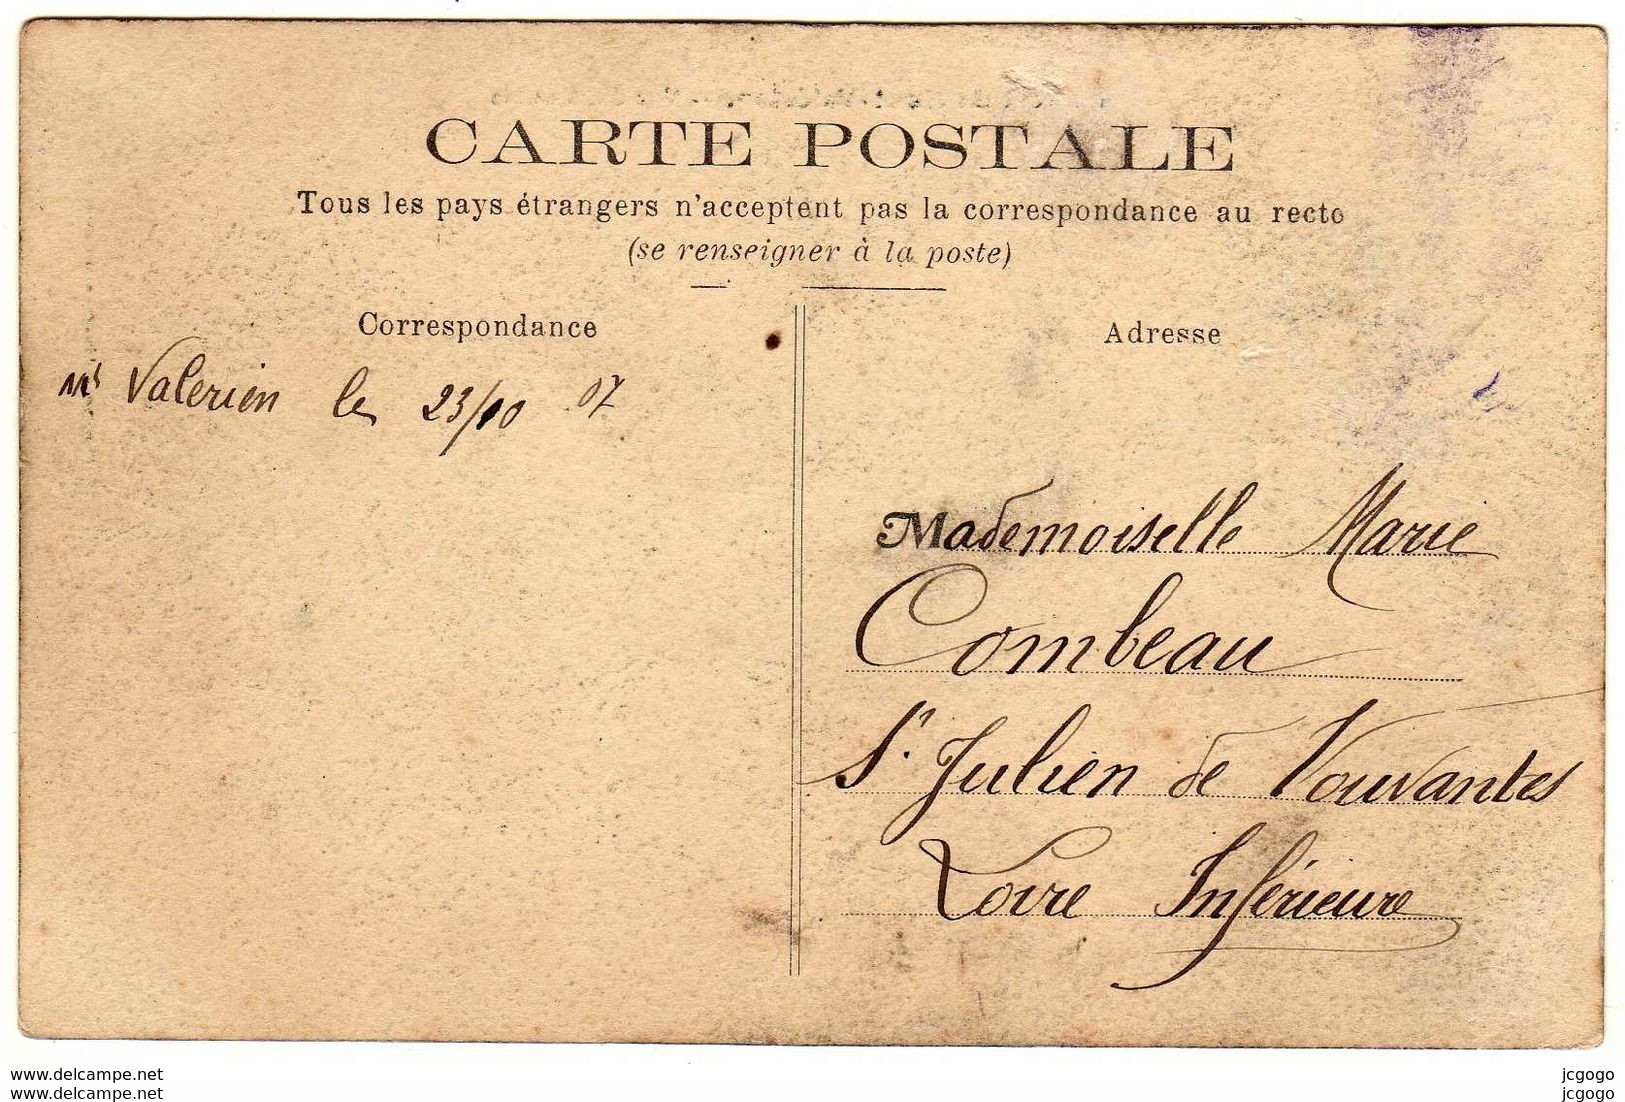 CARTE POSTALE
Tous les pays étrangers n'acceptent pas la correspondance au recto
(se renseigner à la poste)
Correspondance
Mt Valerien le 23/10 07
Adresse
Mademoiselle Marie
Combeau
St. Julien de Vouvantes
Loire Inférieure
www.delcampe.net
www.delcampe.net
jcgogo
jcgogo